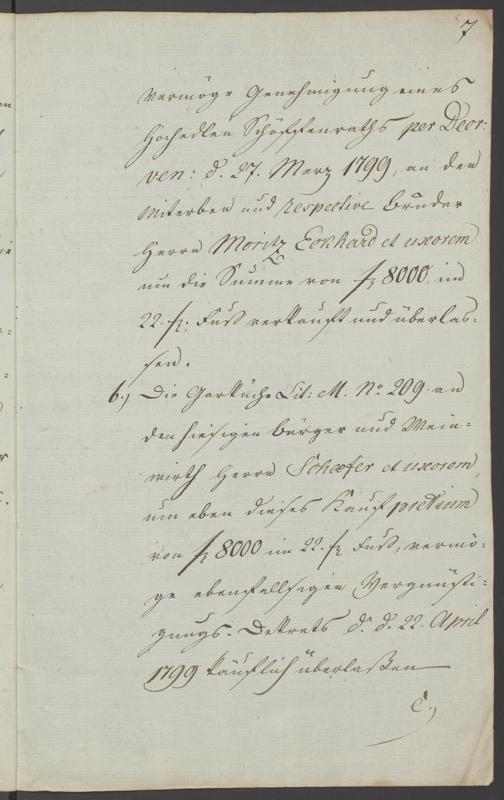 7
Vermöge Genehmigung eines
Hochedlen Schöffenraths per Decr:
ven: d. 27. Merz 1799, an den
Miterben und respective Bruder
Herrn Moritz Eckhard et uxorem
um die Summe von f 8000 im
22. f. Fuß verkauft und überlas-
sen.
b.) Die Garküche Lit: M. No 209 an
den hiesigen Bürger und Wein-
wirth Herrn Schæfer et uxorem,
um eben dieses Kaufpretium
von f 8000 im 22. f Fuß, vermö-
ge ebenfallsigen Vergünsti-
gungs-Dekrets d. d. 22. April
1799 käuflich überlaßen
c.)